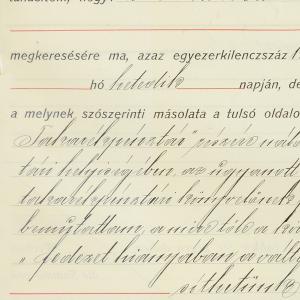 megkeresésére ma, azaz egyezerkilenczszáz
hó hetedik napján, de
a melynek szószerinti másolata a tulsó oldalo
Takarékpénztár" pénzin
tári helyiségében, az ugyanott
takarékpénztári könyvelőnek
bemutattam, a mire tőle a kö
„fedezet hiányában a vált